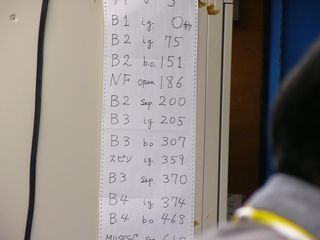 B1 ig. 0秒
B2 ig. 75
B2 b.o. 151
NF open 186
B2 sep. 200
B3 ig. 205
B3 b.o 307
スピン ig. 359
B3 sep. 370
B4 ig. 374
B4 b.o 468